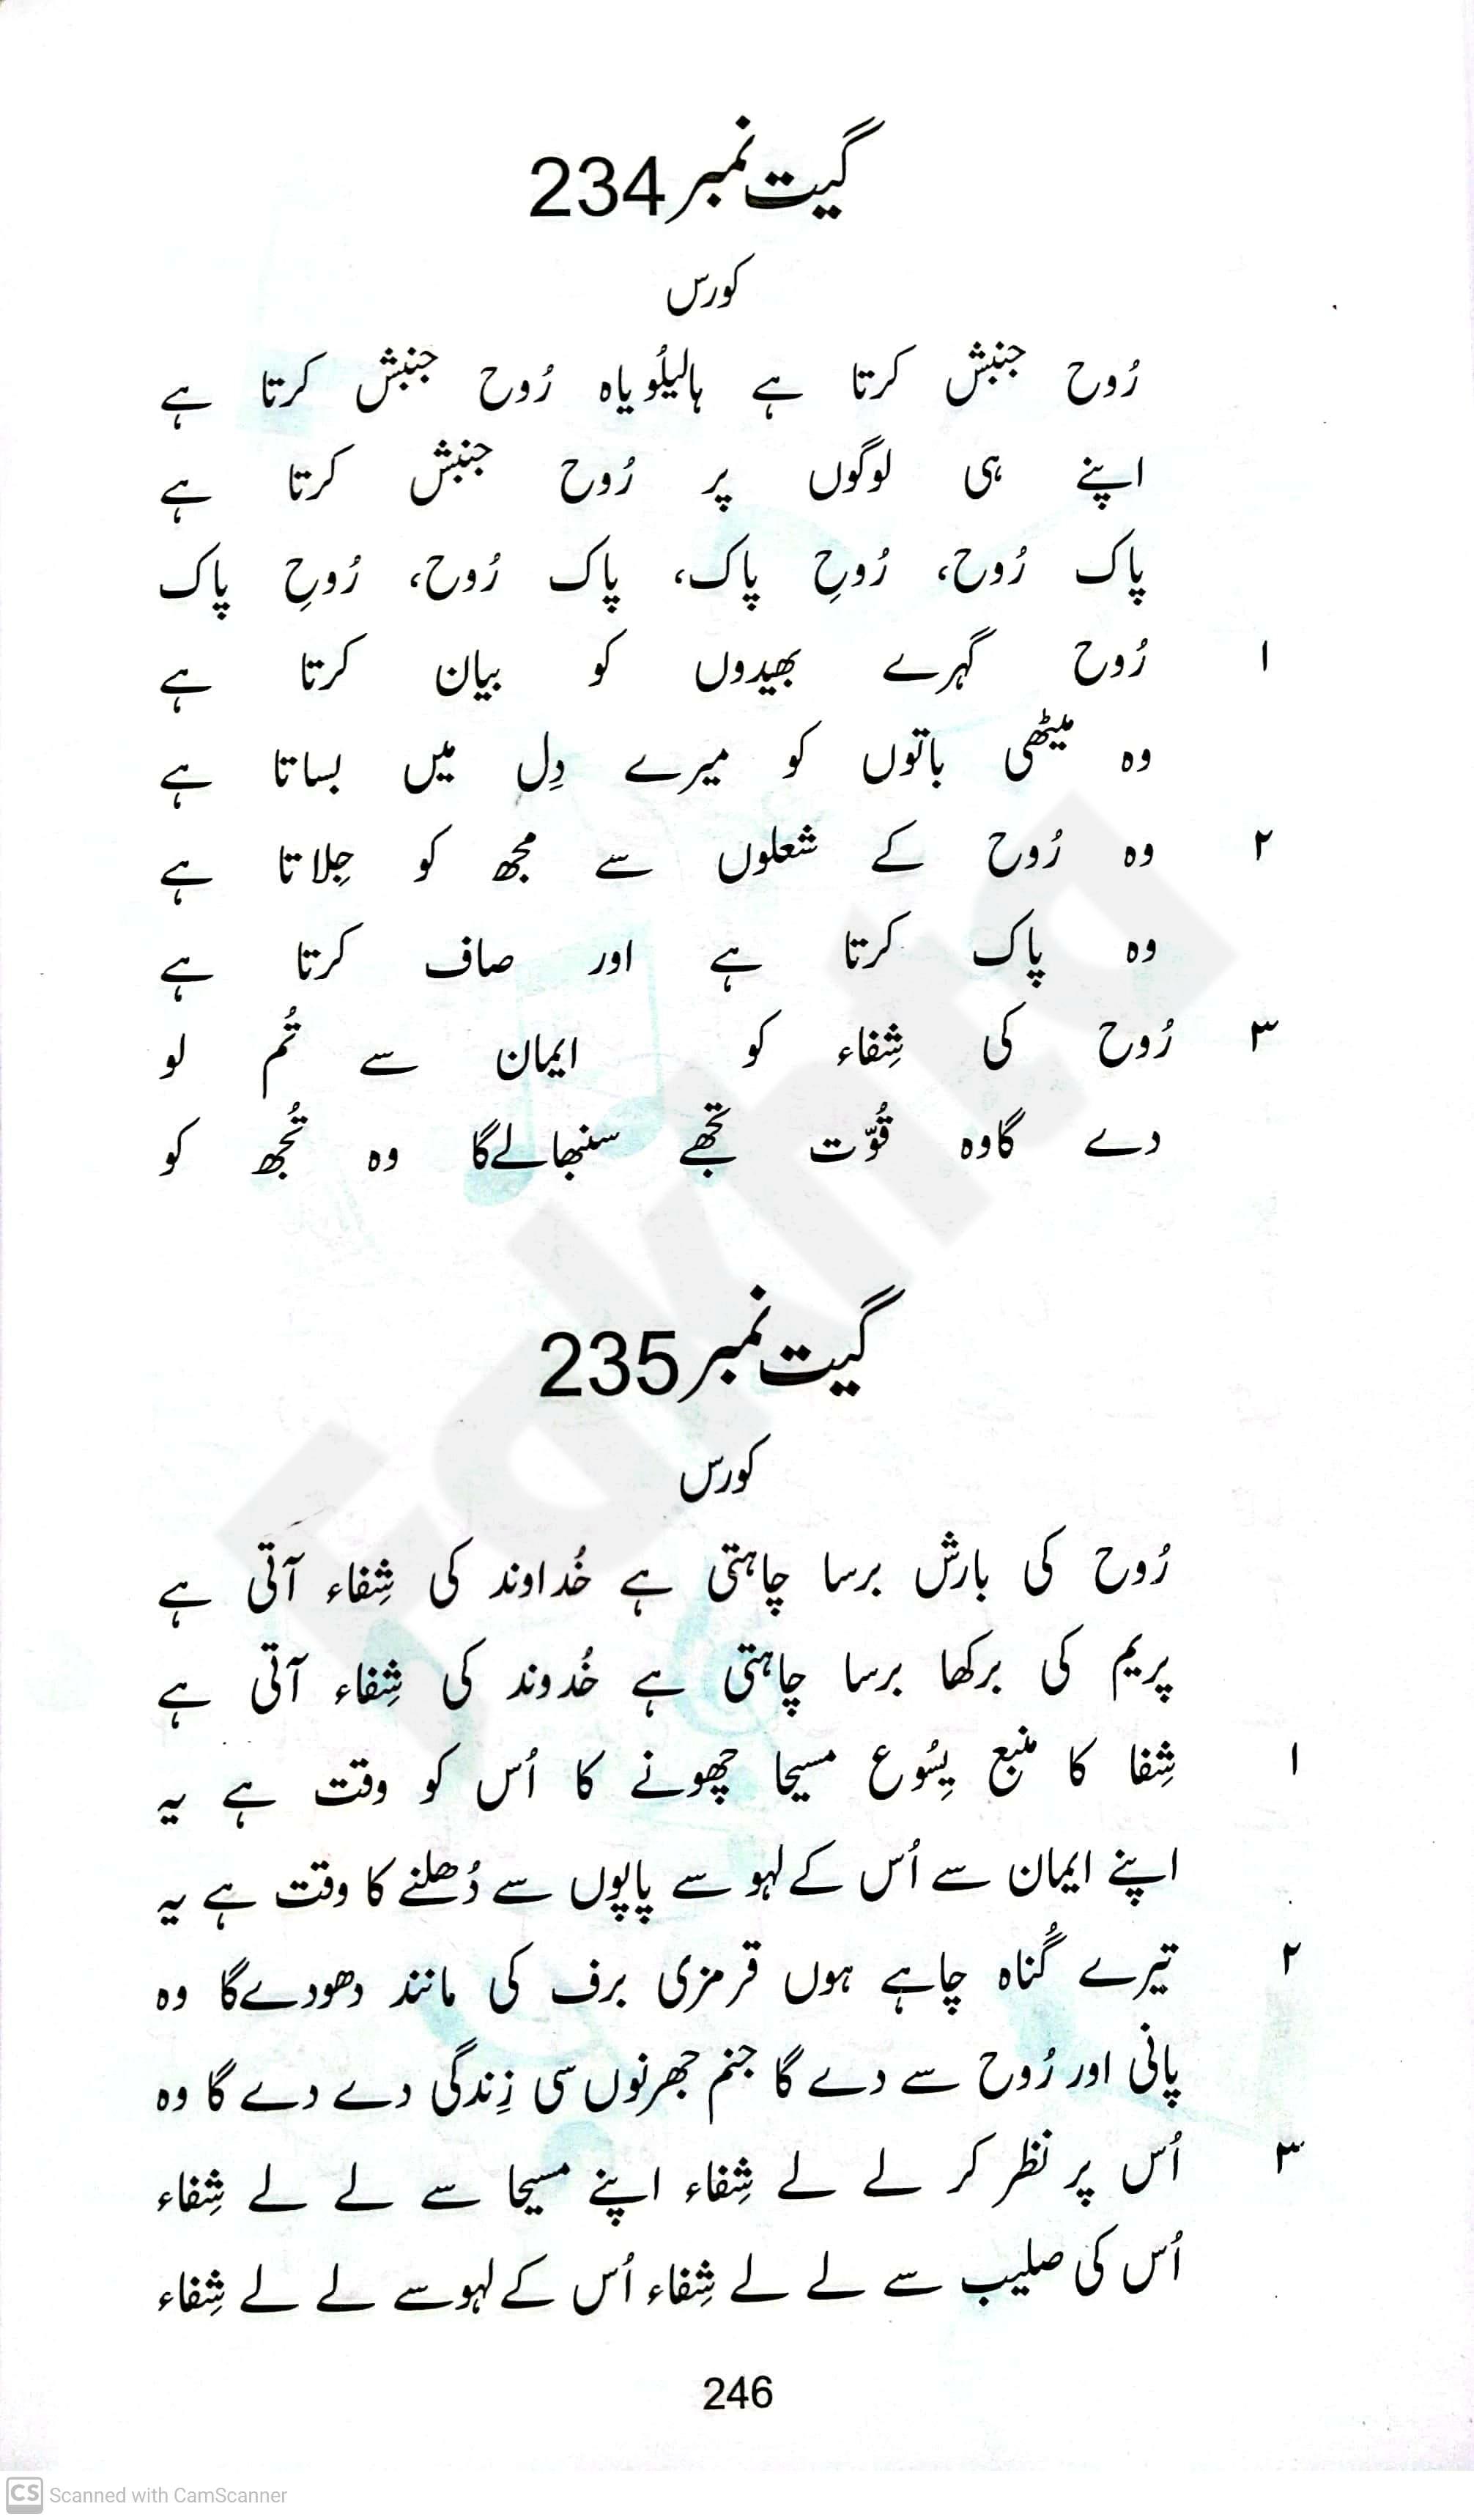 گیت نمبر 234
کورس
رُوح جنبش کرتا ہے ہالیلُویاہ رُوح جنبش کرتا ہے
اپنے ہی لوگوں پر رُوح جنبش کرتا ہے
پاک رُوح، رُوحِ پاک، پاک رُوح، رُوحِ پاک
۱ رُوح گہرے بھیدوں کو بیان کرتا ہے
وہ میٹھی باتوں کو میرے دِل میں بساتا ہے
۲ وہ رُوح کے شعلوں سے مجھ کو جِلاتا ہے
وہ پاک کرتا ہے اور صاف کرتا ہے
۳ رُوح کی شِفاء کو ایمان سے تُم لو
دے گاوہ قُوّت تجھے سنبھالےگا وہ تُجھ کو
گیت نمبر 235
کورس
رُوح کی بارش برسا چاہتی ہے خُداوند کی شِفاء آتی ہے
پریم کی برکھا برسا چاہتی ہے خُدوند کی شِفاء آتی ہے
۱ شِفا کا منبع یِسُوع مسیحا چھونے کا اُس کو وقت ہے یہ
اپنے ایمان سے اُس کے لہو سے پاپوں سے دُھلنے کا وقت ہے یہ
۲ تیرے گُناہ چاہے ہوں قرمزی برف کی مانند دھودےگا وہ
پانی اور رُوح سے دے گا جنم جھرنوں سی زِندگی دے دے گا وہ
۳ اُس پر نظر کر لے لے شِفاء اپنے مسیحا سے لے لے شِفاء
اُس کی صلیب سے لے لے شِفاء اُس کے لہوسے لے لے شِفاء
246
Fakhta
CS Scanned with CamScanner